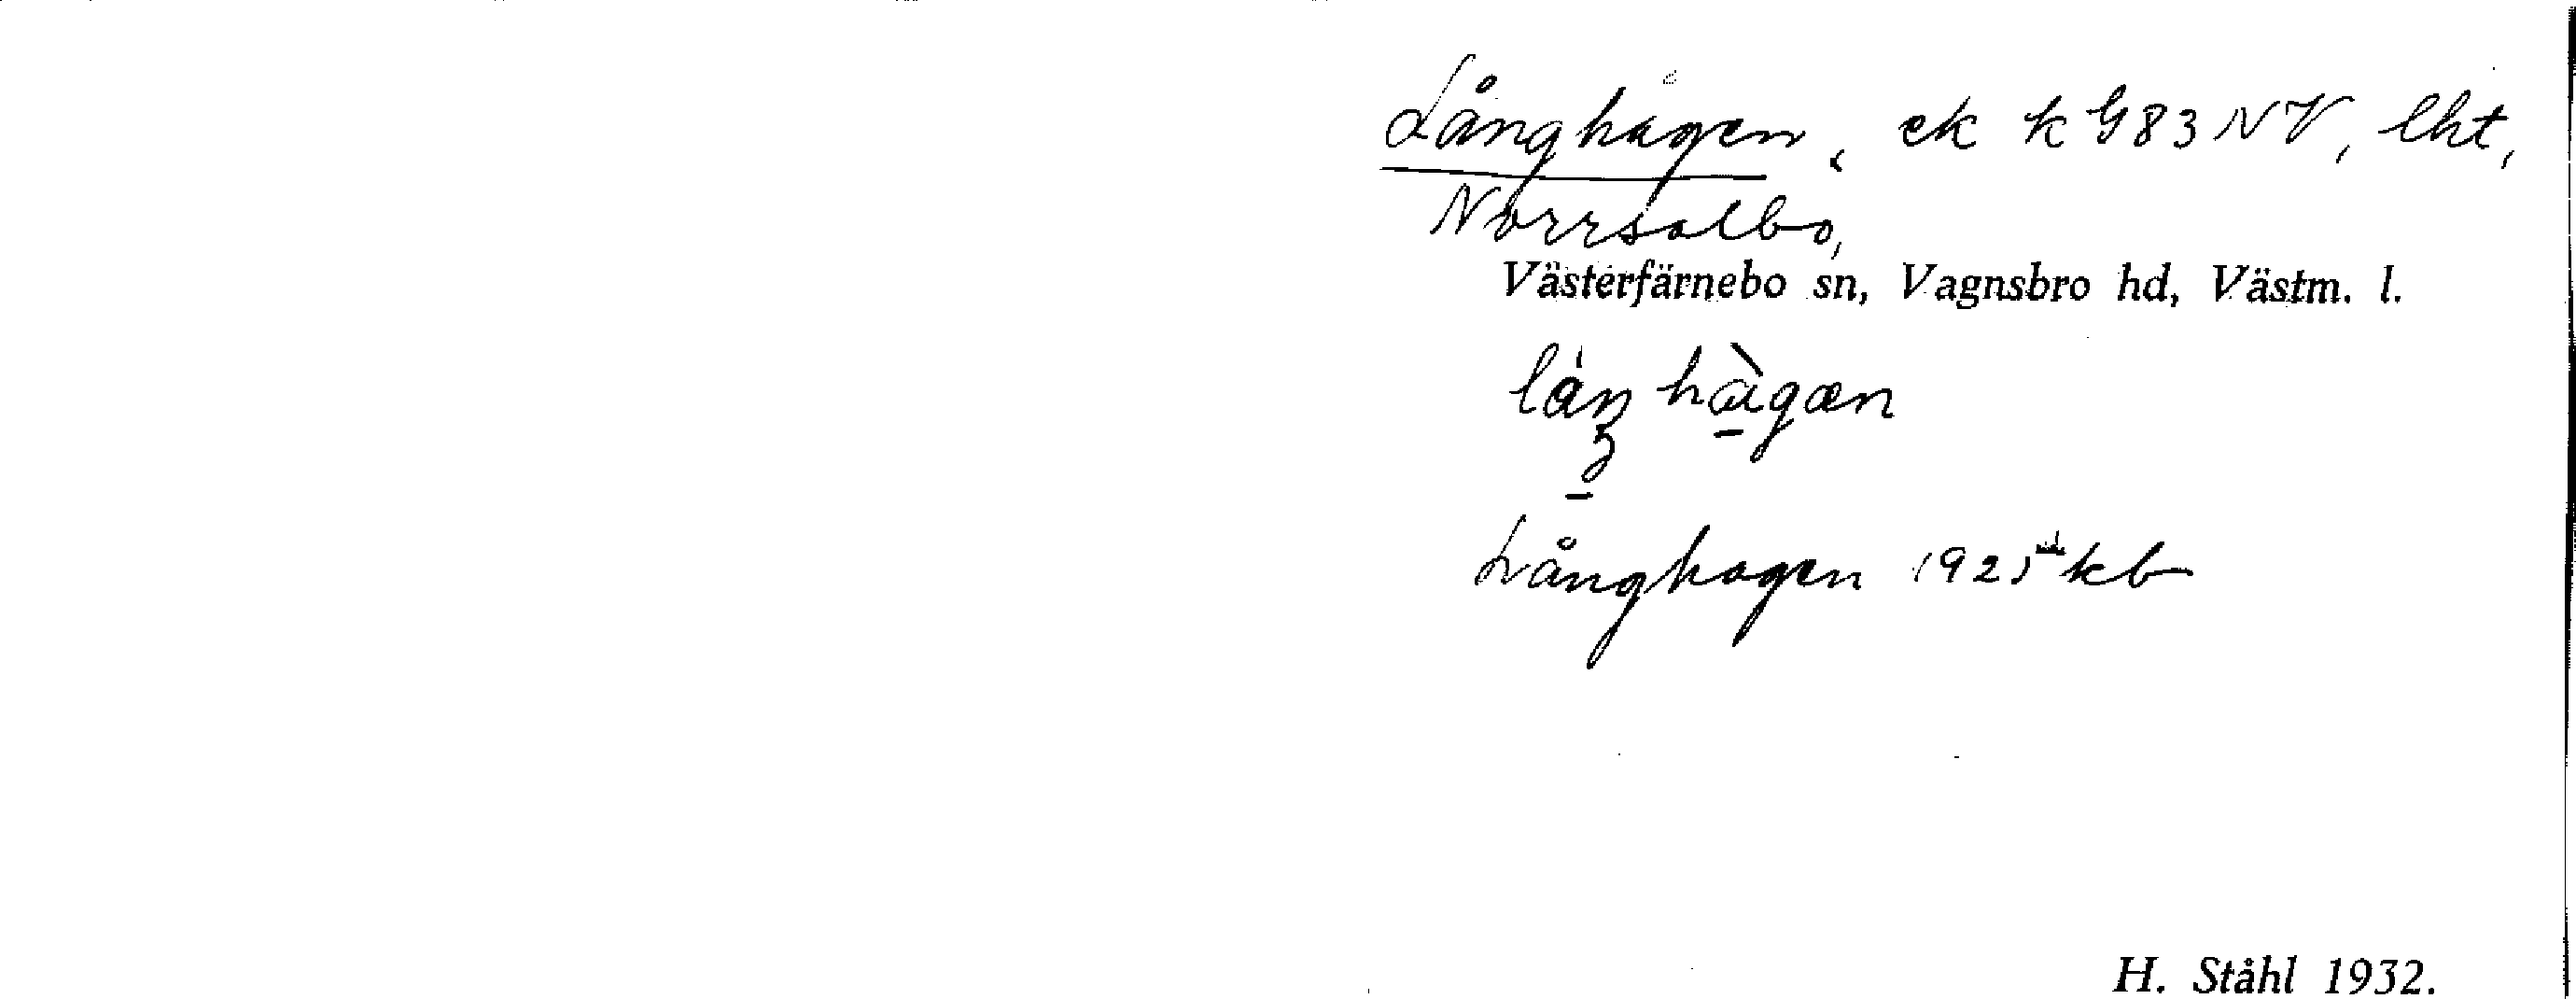 Långhagen, ek k G83 NV, lht,
Norrsalbo,
Västerfärnebo sn, Vagnsbro hd, Västm. l.
hàgæn
Långhagen 1925 kb
H. Ståhl 1932.